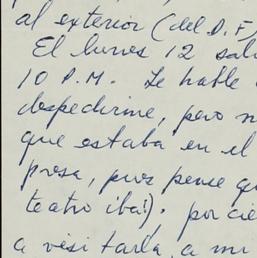 al exterior (del D.F
El lunes 12 sal
10 P.M. Le hable
despedirme, pero n
que estaba en el
presa, pues pense qu
teatro iba). por cie
a visitarla, a mi